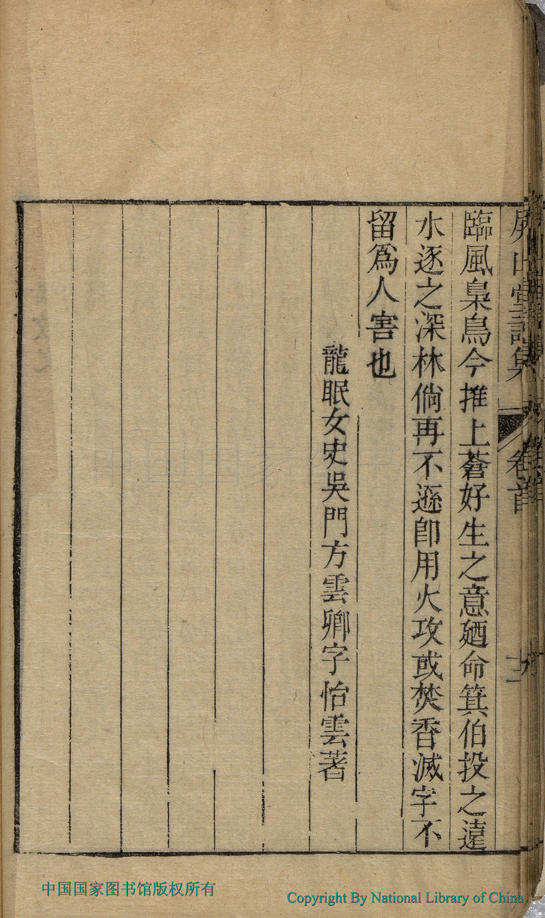 臨風梟鳥今推上蒼好生之意廼命箕伯投之遠
水逐之深林倘再不遜卽用火攻或焚香滅字不
留爲人害也
龍眠女史吳門方雲卿字怡雲著
卷首
中国国家图书馆版权所有
Copyright By National Library of China